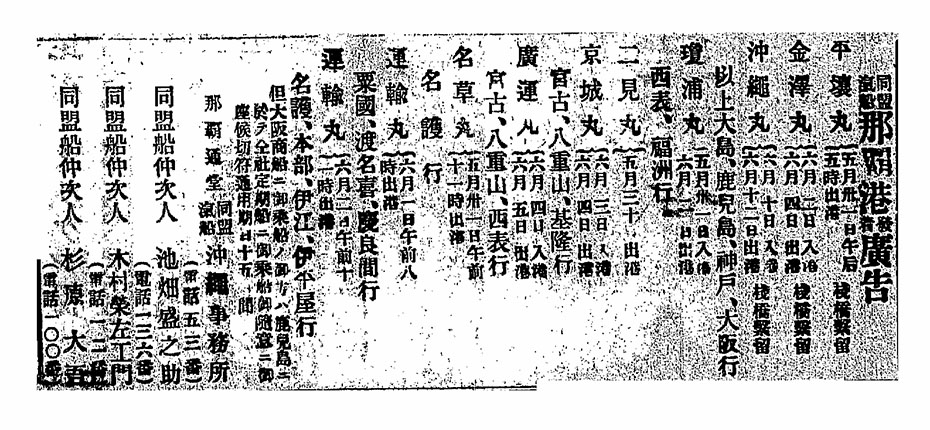 同盟
滊船 那覇港發着廣告
平壤丸 五月卅一日午后 五時出港 棧橋繋留
金澤丸 六月二日入港 六月四日出港 棧橋繋留
沖繩丸 六月十日入港 六月十二日出港 棧橋繋留
以上大島、鹿兒島、神戶、大阪行
瓊浦丸 五月卅一日入港 六月 日出港
西表、福洲行
二見丸 五月三十 出港
京城丸 六月三日入港 六月四日出港
宮古、八重山、基隆行
廣運丸 六月四日入港 六月五日出港
宮古、八重山、西表行
名草丸 五月卅一日午前 十一時出港
名護行
運輸丸 六月一日午前八 時出港
粟國、渡名喜、慶良間行
運輸丸 六月二日午前十 一時出港
名護、本部、伊江、伊平屋行
但大阪商船ニ御乘船ノ御方ハ鹿兒島ニ
於テ仝社定期船ニ御乘船御隨意ニ御
座候切符通用期日十五 間
那覇通堂 同盟滊船 沖繩事務所
(電話五三番)
同盟船仲次人 池畑盛之助
(電話一三六番)
同盟船仲次人 木村榮左工門
(電話一二 番)
同盟船仲次人 杉原大吾
(電話一〇〇番)